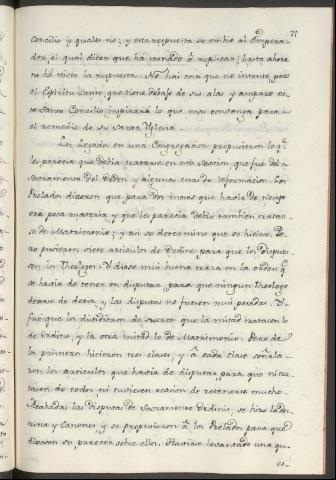 71
Concilio y quales no; y esta respuesta se embio al Empera-
dor, el qual dicen que ha tornado à replicar; hasta ahora
no he visto la respuesta. No hai cosa que no intente, pero
el Espiritu Santo que tiene debajo de sus alas y amparo es-
te Santo Concilio, inspirará lo que mas convenga para
el remedio de su Santa Yglesia.
Los Legados en una Congregacion propusieron lo q.
les parecia que debia tratarse en esta Session, que fue del
Sacramento del Orden y algunas cosas de reformacion. Los
Prelados dixeron que para dos meses que havia de tiempo
era poca materia y que les parecia debia tambien tratar-
se de Matrimonio; y assi se determino que se hiciese. Pro-
pusieron siete articulos de Ordine para que los disputa-
sen los Theologos. Y diose mui buena traza en la orden q.
se havia de tener en disputar, para que ningun Theologo
dexase de decir, y las disputas no fuesen mui pesadas. Y
fue que lo dividieron de suerte que la mitad tratasen lo
de Ordine, y la otra mitad lo de Matrimonio. Pero de
los primeros hicieron tres clases, y à cada clase señala-
ron los articulos que havia de disputar, para que ni tra-
tasen de todos ni tuviesen ocasion de detenerse mucho.
Acabadas las Disputas de Sacramento Ordinis, se hizo la doc-
trina y Canones, y se propusieron à los Prelados para que
dixesen su parecer sobre ellos. Haviase levantado una qu-
es-